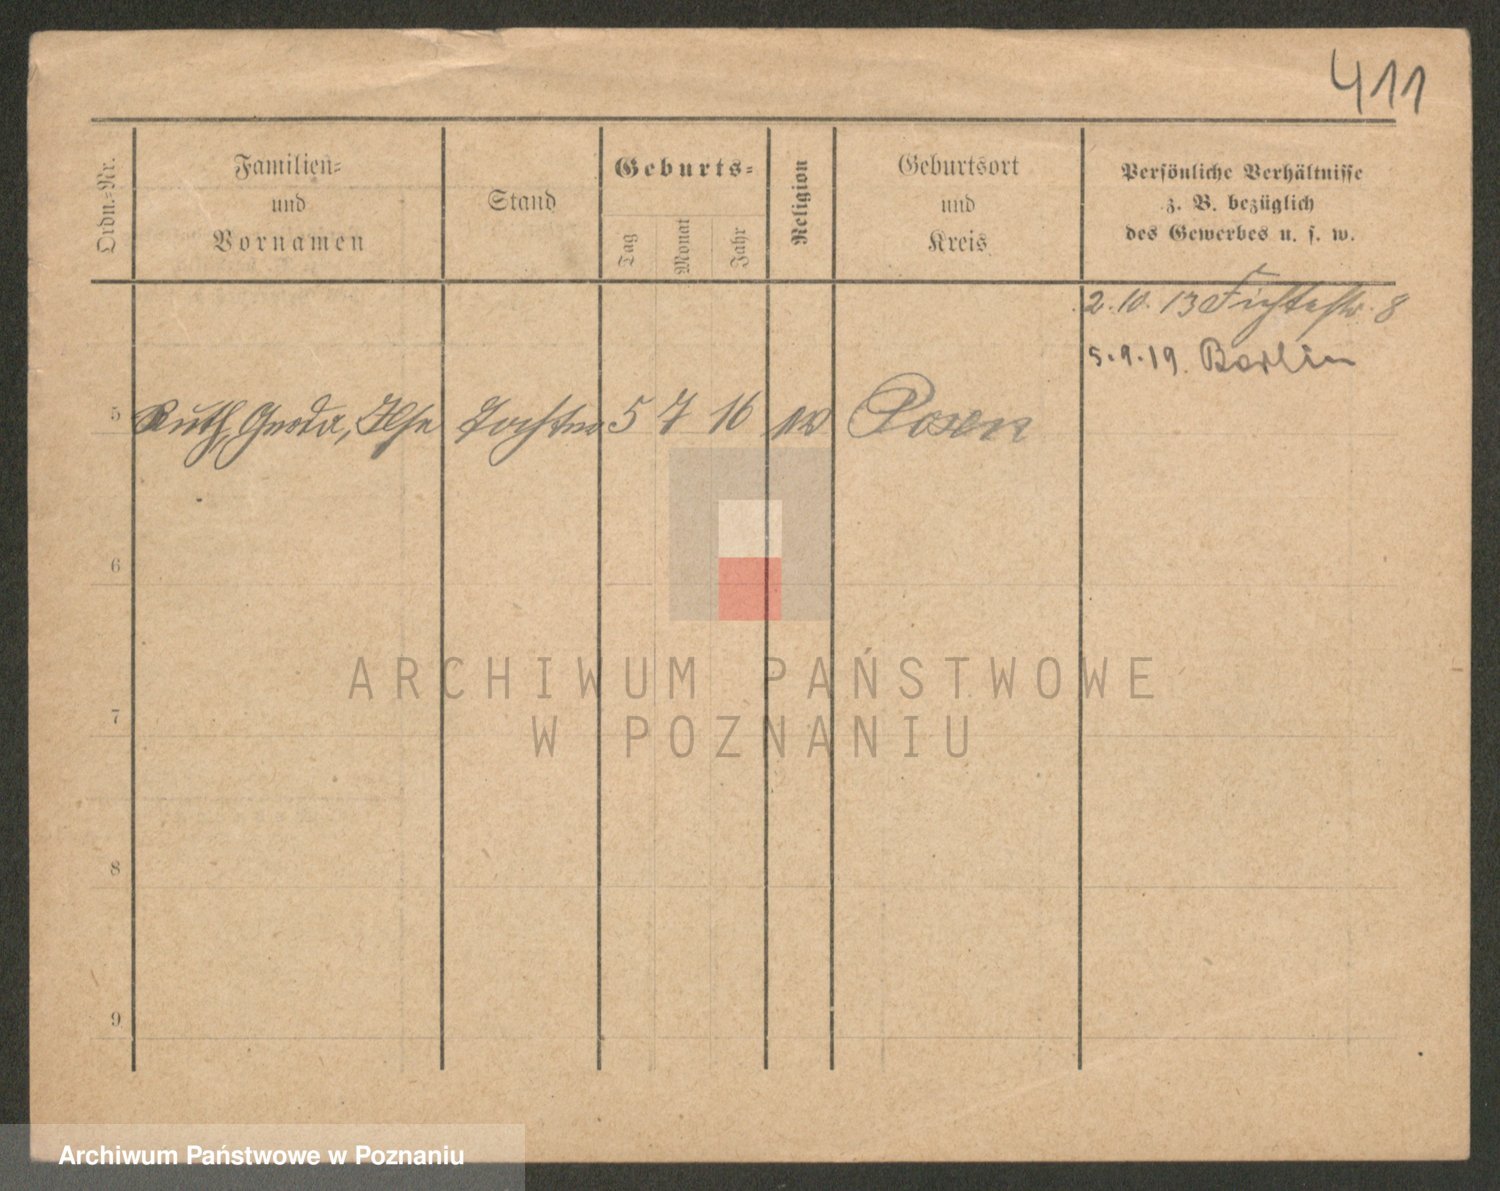 411
Ordn.-Nr.
Familien-
und
Vornamen
Stand
Geburts-
Tag
Monat
Jahr
Religion
Geburtsort
und
Kreis
Persönliche Verhältnisse
z. B. bezüglich
des Gewerbes u. s. w.
2. 10. 13 Fichtestr. 8
5. 9. 19. Berlin
5 Ruth Gerda, Ilse Tochter 5 7 16 Posen
6
7
8
9
ARCHIWUM PAŃSTWOWE
W POZNANIU
Archiwum Państwowe w Poznaniu